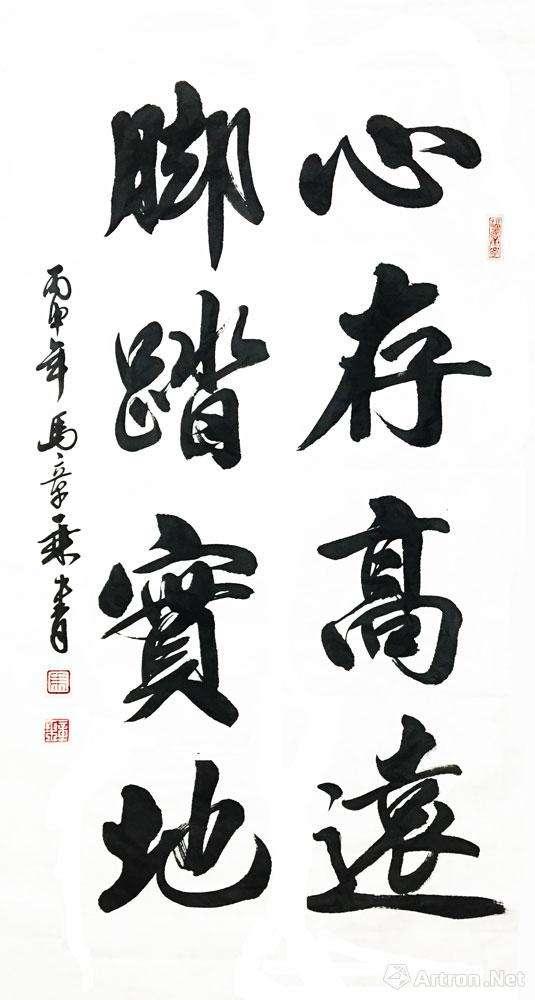 心存高遠
腳踏實地
丙申年馬章乘書
Artron.Net